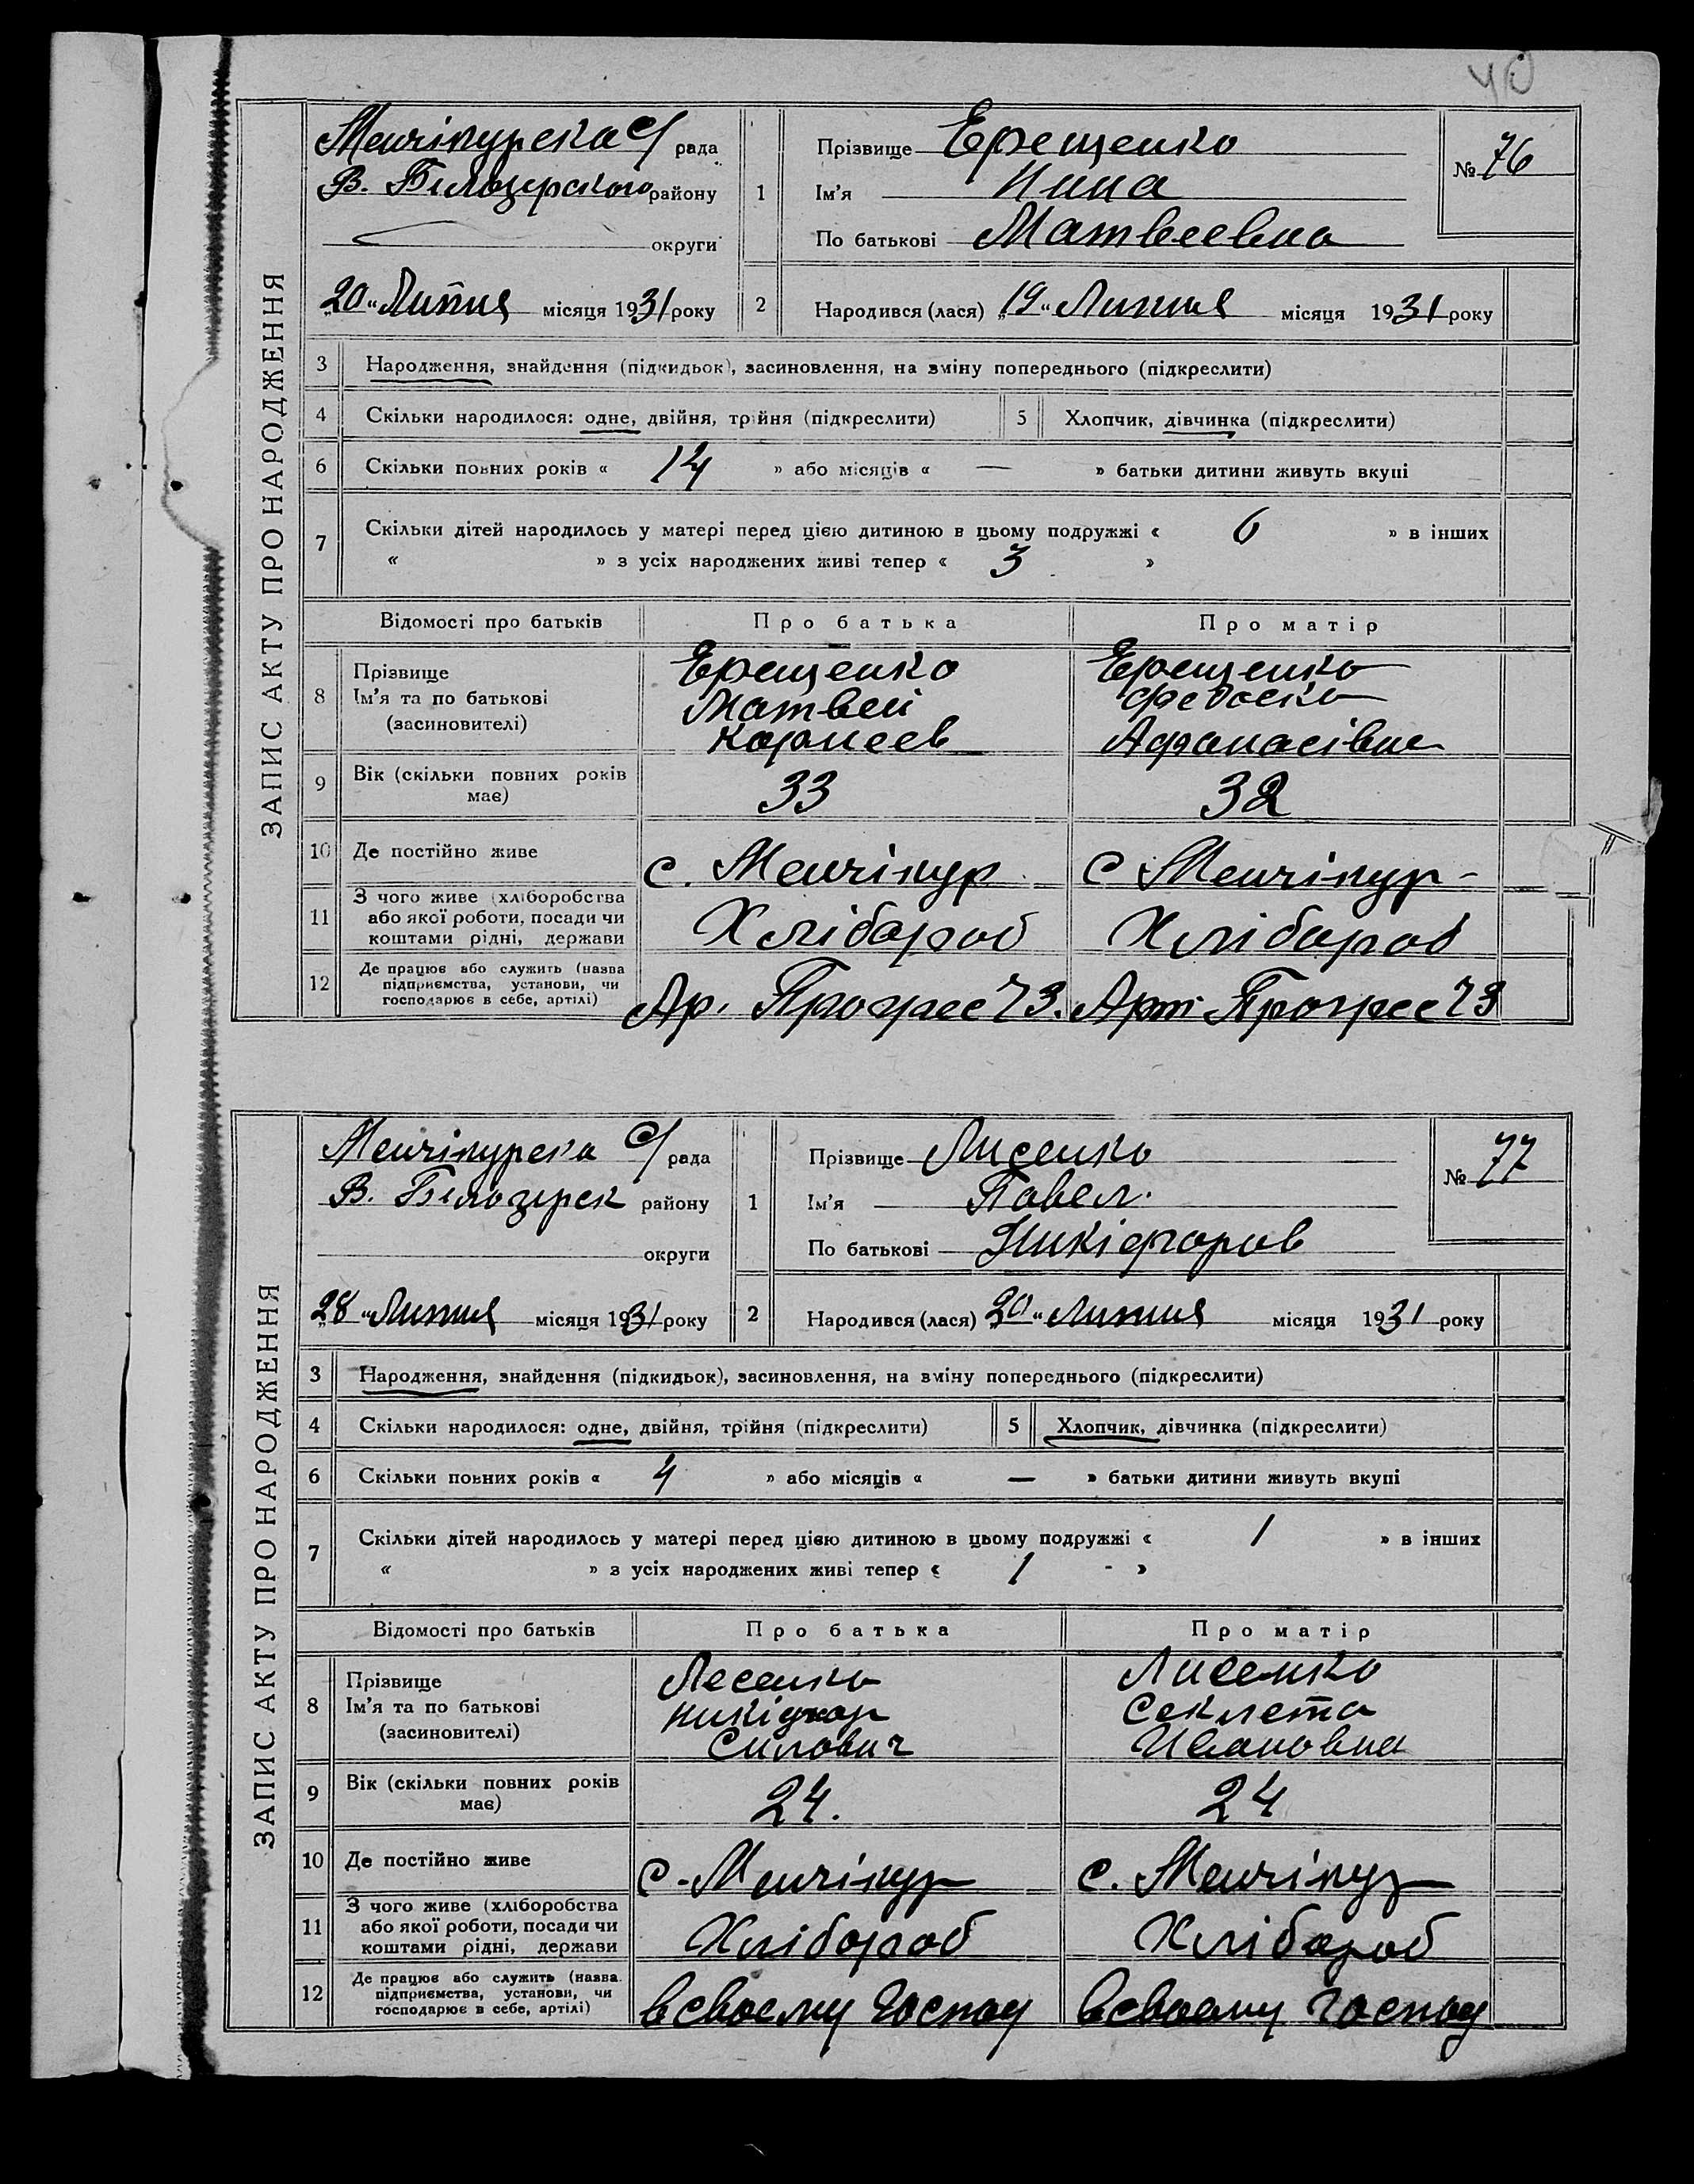 40
ЗАПИС АКТУ ПРО НАРОДЖЕННЯ
Менчікурска с/ рада
В. Білозерского району
округи
№ 76
1 Прізвище Ерещенко
Ім'я Нина
По батькові Матвеевна
„20" Липня місяця 1931 року
2 Народився (лася) „19" Липня місяця 1931 року
3 Народження, знайдення (підкидьок), засиновлення, на зміну попереднього (підкреслити)
4 Скільки народилося: одне, двійня, трійня (підкреслити) 5 Хлопчик, дівчинка (підкреслити)
6 Скільки повних років « 14 » або місяців « — » батьки дитини живуть вкупі
7 Скільки дітей народилось у матері перед цією дитиною в цьому подружжі « 6 » в інших
« » з усіх народжених живі тепер « 3 »
Відомості про батьків Про батька Про матір
8 Прізвище Ерещенко Ерещенко
Ім'я та по батькові Матвей Федоска
(засиновителі) Корнеев Афанасівна
9 Вік (скільки повних років має) 33 32
10 Де постійно живе с. Менчікур с Менчікур-
11 З чого живе (хліборобства
або якої роботи, посади чи Хлібороб Хлібороб
коштами рідні, держави
12 Де працює або служить (назва
підприємства, установи, чи
господарює в себе, артілі) Ар. Прогрес ЧЗ. Арт. Прогрес ЧЗ
ЗАПИС АКТУ ПРО НАРОДЖЕННЯ
Менчікурска с/ рада
В. Білозерск району
округи
№ 77
1 Прізвище Лисенко
Ім'я Павел.
По батькові Никіфоров
„28" Липня місяця 1931 року
2 Народився (лася) „20" Липня місяця 1931 року
3 Народження, знайдення (підкидьок), засиновлення, на зміну попереднього (підкреслити)
4 Скільки народилося: одне, двійня, трійня (підкреслити) 5 Хлопчик, дівчинка (підкреслити)
6 Скільки повних років « 4 » або місяців « — » батьки дитини живуть вкупі
7 Скільки дітей народилось у матері перед цією дитиною в цьому подружжі « 1 » в інших
« » з усіх народжених живі тепер « 1 - »
Відомості про батьків Про батька Про матір
8 Прізвище Лесенко Лисенко
Ім'я та по батькові Никіфор Секлета
(засиновителі) Силович Ивановна
9 Вік (скільки повних років має) 24. 24
10 Де постійно живе с-Менчікур с. Менчікур
11 З чого живе (хліборобства
або якої роботи, посади чи Хлібороб Хлібороб
коштами рідні, держави
12 Де працює або служить (назва
підприємства, установи, чи
господарює в себе, артілі) в своему господ в своему господ